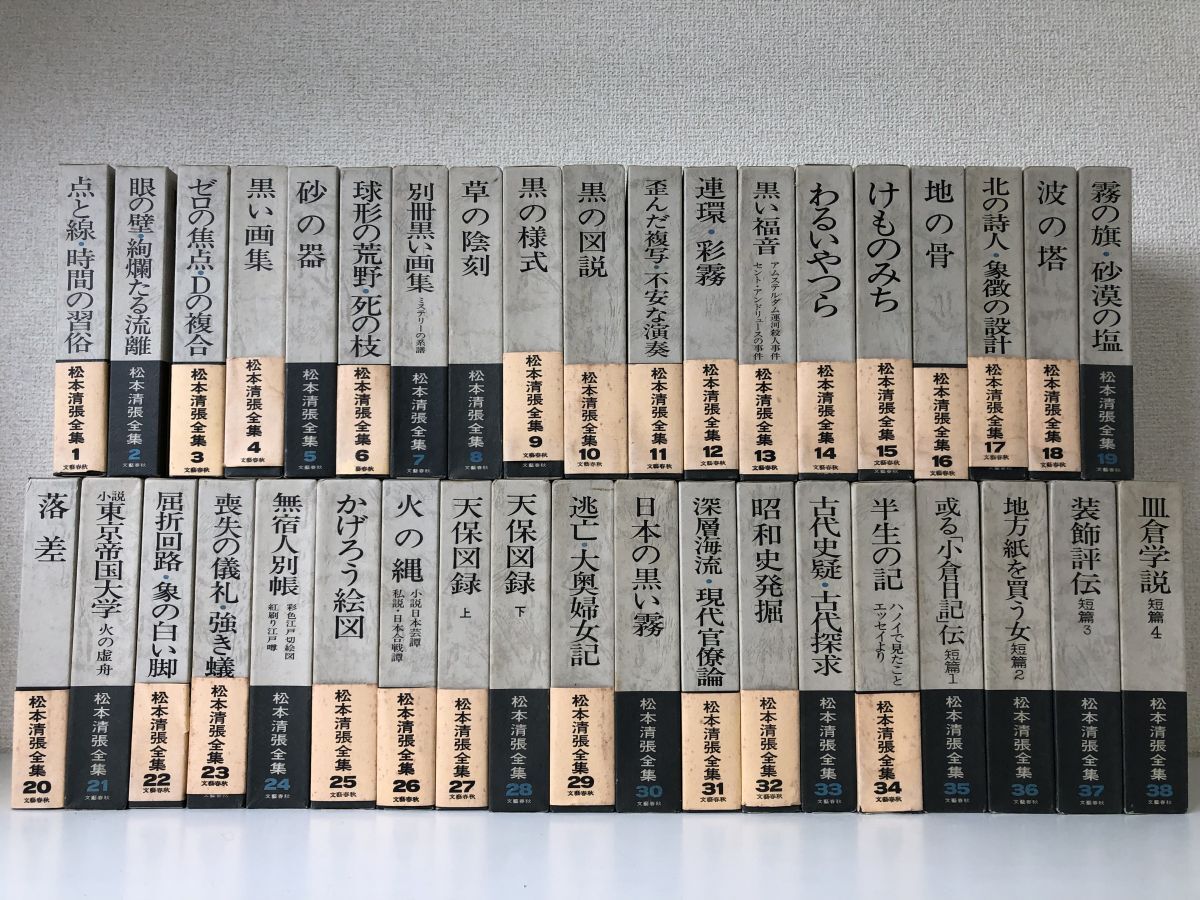 点と線・時間の習俗
松本清張全集
1
文藝春秋
眼の壁・絢爛たる流離
松本清張全集
2
文藝春秋
ゼロの焦点・Dの複合
松本清張全集
3
文藝春秋
黒い画集
松本清張全集
4
文藝春秋
砂の器
松本清張全集
5
文藝春秋
球形の荒野・死の枝
松本清張全集
6
文藝春秋
別冊黒い画集
ミステリーの系譜
松本清張全集
7
文藝春秋
草の陰刻
松本清張全集
8
文藝春秋
黒の様式
松本清張全集
9
文藝春秋
黒の図説
松本清張全集
10
文藝春秋
歪んだ複写・不安な演奏
松本清張全集
11
文藝春秋
連環・彩霧
松本清張全集
12
文藝春秋
黒い福音
アムステルダム運河殺人事件
セント・アンドリュースの事件
松本清張全集
13
文藝春秋
わるいやつら
松本清張全集
14
文藝春秋
けものみち
松本清張全集
15
文藝春秋
地の骨
松本清張全集
16
文藝春秋
北の詩人・象徴の設計
松本清張全集
17
文藝春秋
波の塔
松本清張全集
18
文藝春秋
霧の旗・砂漠の塩
松本清張全集
19
文藝春秋
落差
松本清張全集
20
文藝春秋
小説東京帝国大学
火の虚舟
松本清張全集
21
文藝春秋
屈折回路・象の白い脚
松本清張全集
22
文藝春秋
喪失の儀礼・強き蟻
松本清張全集
23
文藝春秋
無宿人別帳
彩色江戸切絵図
紅刷り江戸噂
松本清張全集
24
文藝春秋
かげろう絵図
松本清張全集
25
文藝春秋
火の縄
小説日本芸譚
私説・日本合戦譚
松本清張全集
26
文藝春秋
天保図録
上
松本清張全集
27
文藝春秋
天保図録
下
松本清張全集
28
文藝春秋
逃亡・大奥婦女記
松本清張全集
29
文藝春秋
日本の黒い霧
松本清張全集
30
文藝春秋
深層海流・現代官僚論
松本清張全集
31
文藝春秋
昭和史発掘
松本清張全集
32
文藝春秋
古代史疑・古代探求
松本清張全集
33
文藝春秋
半生の記
ハノイで見たこと
エッセイより
松本清張全集
34
文藝春秋
或る「小倉日記」伝
短篇1
松本清張全集
35
文藝春秋
地方紙を買う女
短篇2
松本清張全集
36
文藝春秋
装飾評伝
短篇3
松本清張全集
37
文藝春秋
皿倉学説
短篇4
松本清張全集
38
文藝春秋